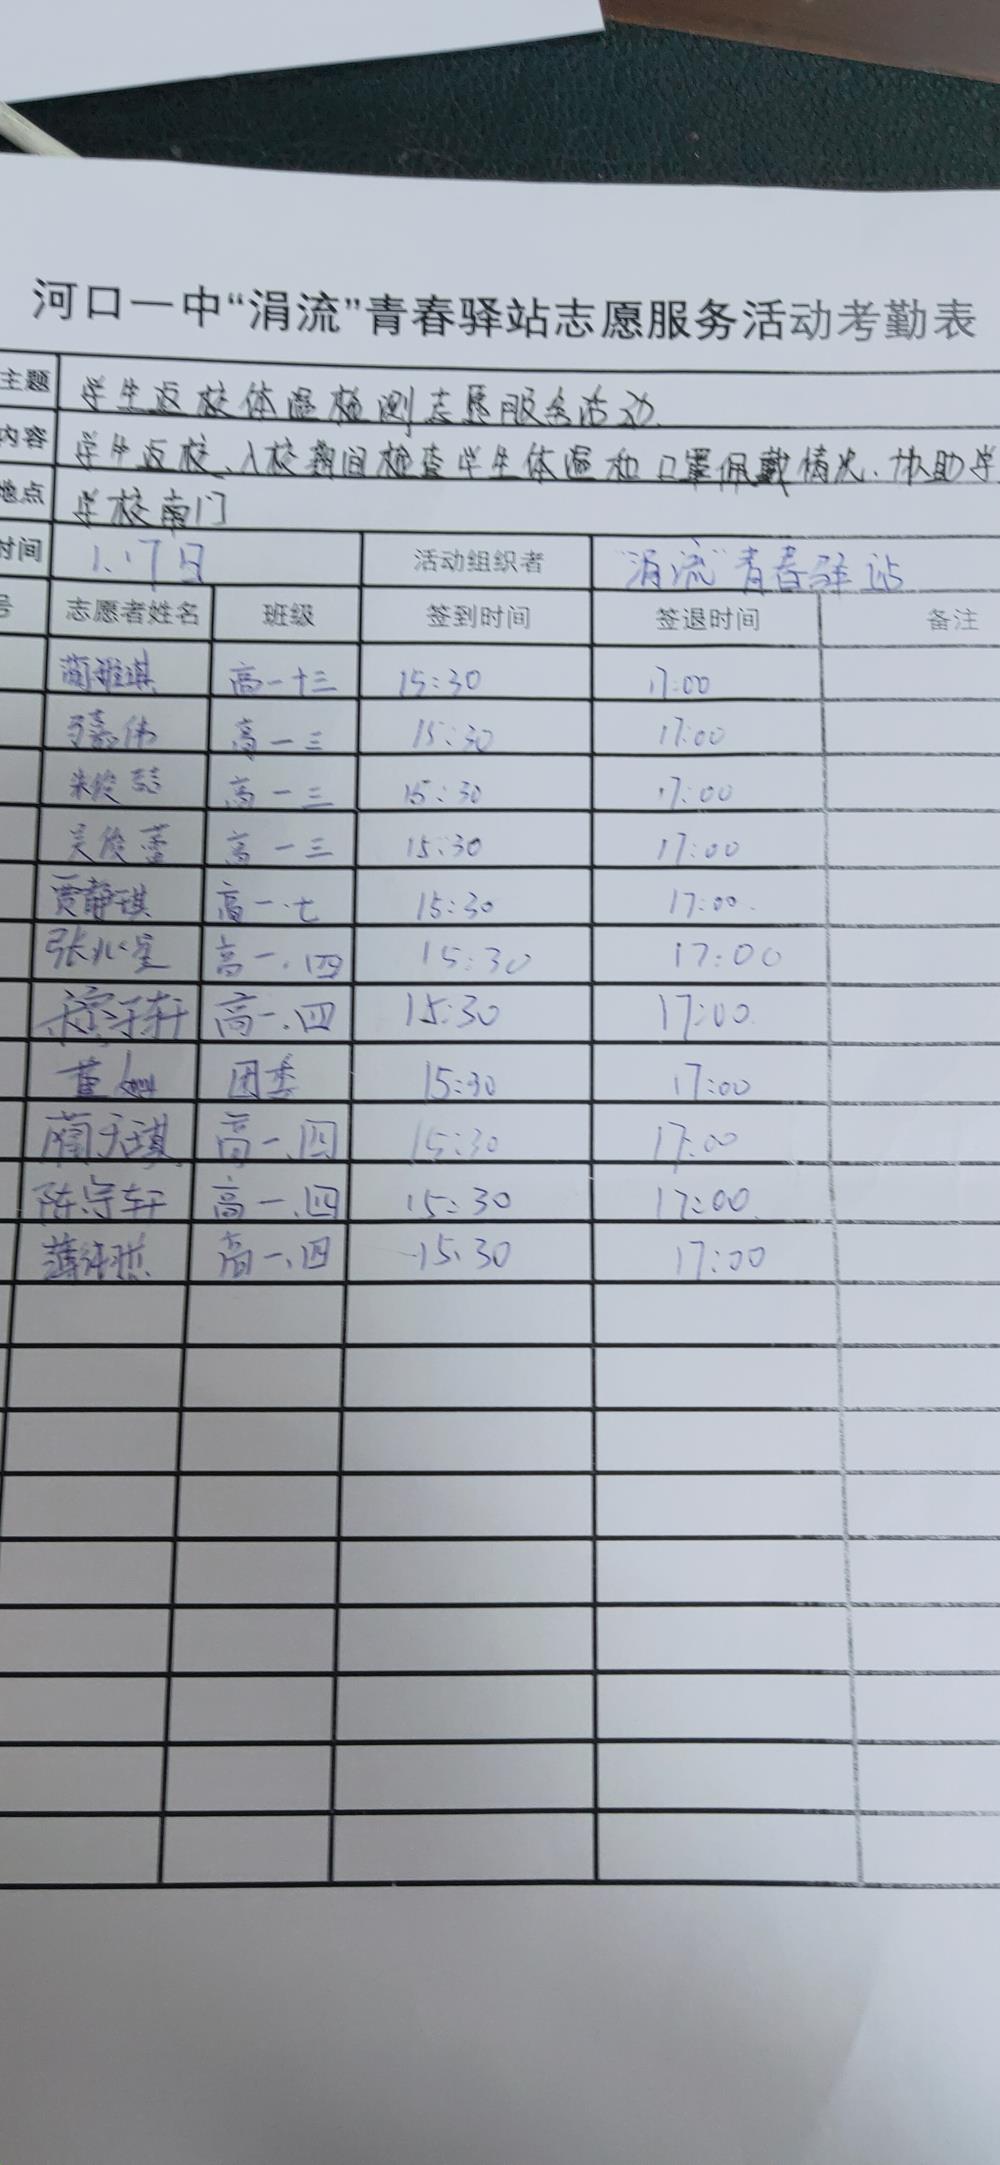 河口一中“涓流”青春驿站志愿服务活动考勤表
主题 学生返校体温检测志愿服务活动.
内容 学生返校、入校期间检查学生体温和口罩佩戴情况.协助学
地点 学校南门
时间 1.17日 活动组织者 “涓流”青春驿站
号 志愿者姓名 班级 签到时间 签退时间 备注
高一十三 15:30 17:00
高一三 15:30 17:00
高一三 15:30 17:00
高一三 15:30 17:00
贾静琪 高一.七 15:30 17:00.
张兆星 高一.四 15:30 17:00
高一.四 15:30 17:00.
董 团委 15:30 17:00
蔺天琪 高一.四 15:30 17:00
陈宇轩 高一.四 15:30 17:00.
高一.四 15:30 17:00